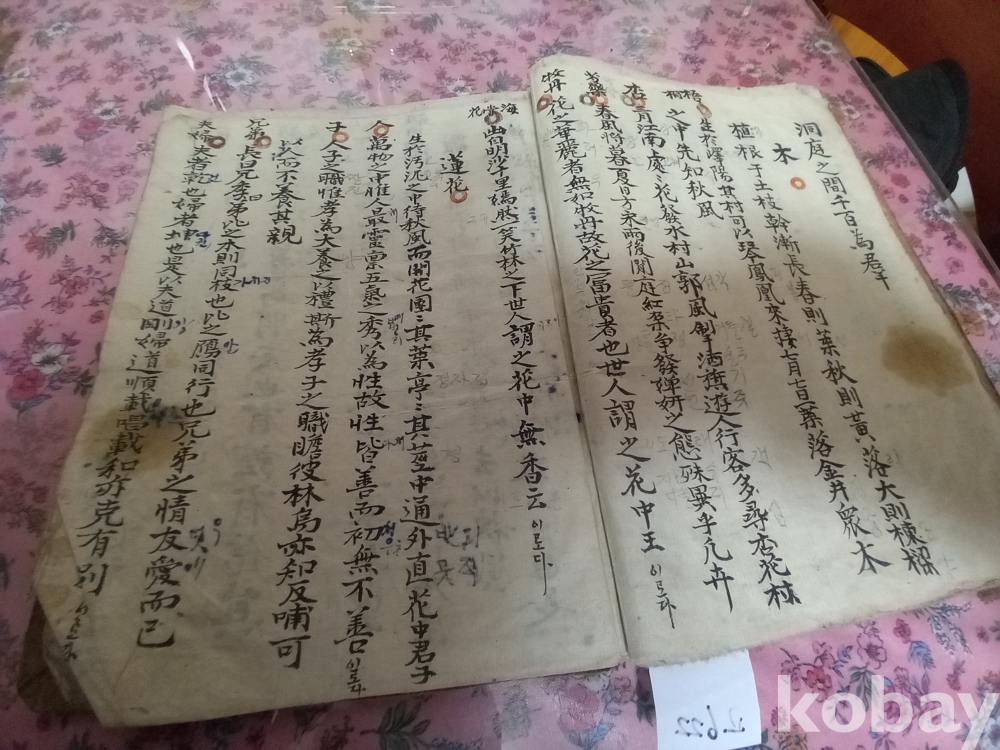 洞庭之間千百為群
木
植根于土枝幹漸長春則葉秋則黃落大則棟樑
梧桐
生於嶧陽其材可以琴鳳凰來捿七月七日一葉落金井衆木
之中先知秋風
杏
二月江南處處花發水村山郭風制酒旗遊人行客多尋杏花村
芍藥
春風將暮夏日方來雨後閒庭紅朶争發嬋姸之態殊異乎凡卉
牧丹
花之華麗者無如牧丹故花之冨貴者也世人謂之花中王 이로다
海棠花
出自明沙十里嫣然一笑竹林之下世人謂之花中無香云 이로다
蓮花
生於汚泥之中待秋風而開花團々其葉亭々其莖中通外直花中君子
人
萬物之中惟人最靈禀五氣之秀以為性故性皆善而初無不善 이로다
子
人子之職惟孝為大養之以禮斯為孝子之職瞻彼林烏亦知反哺可
以人而不養其親
兄弟
長曰兄季曰弟比之木則同枝也比之鴈同行也兄弟之情友愛而已
夫婦
夫者乾也婦者坤也是以夫道剛婦道順載唱載和亦克有別
kobay